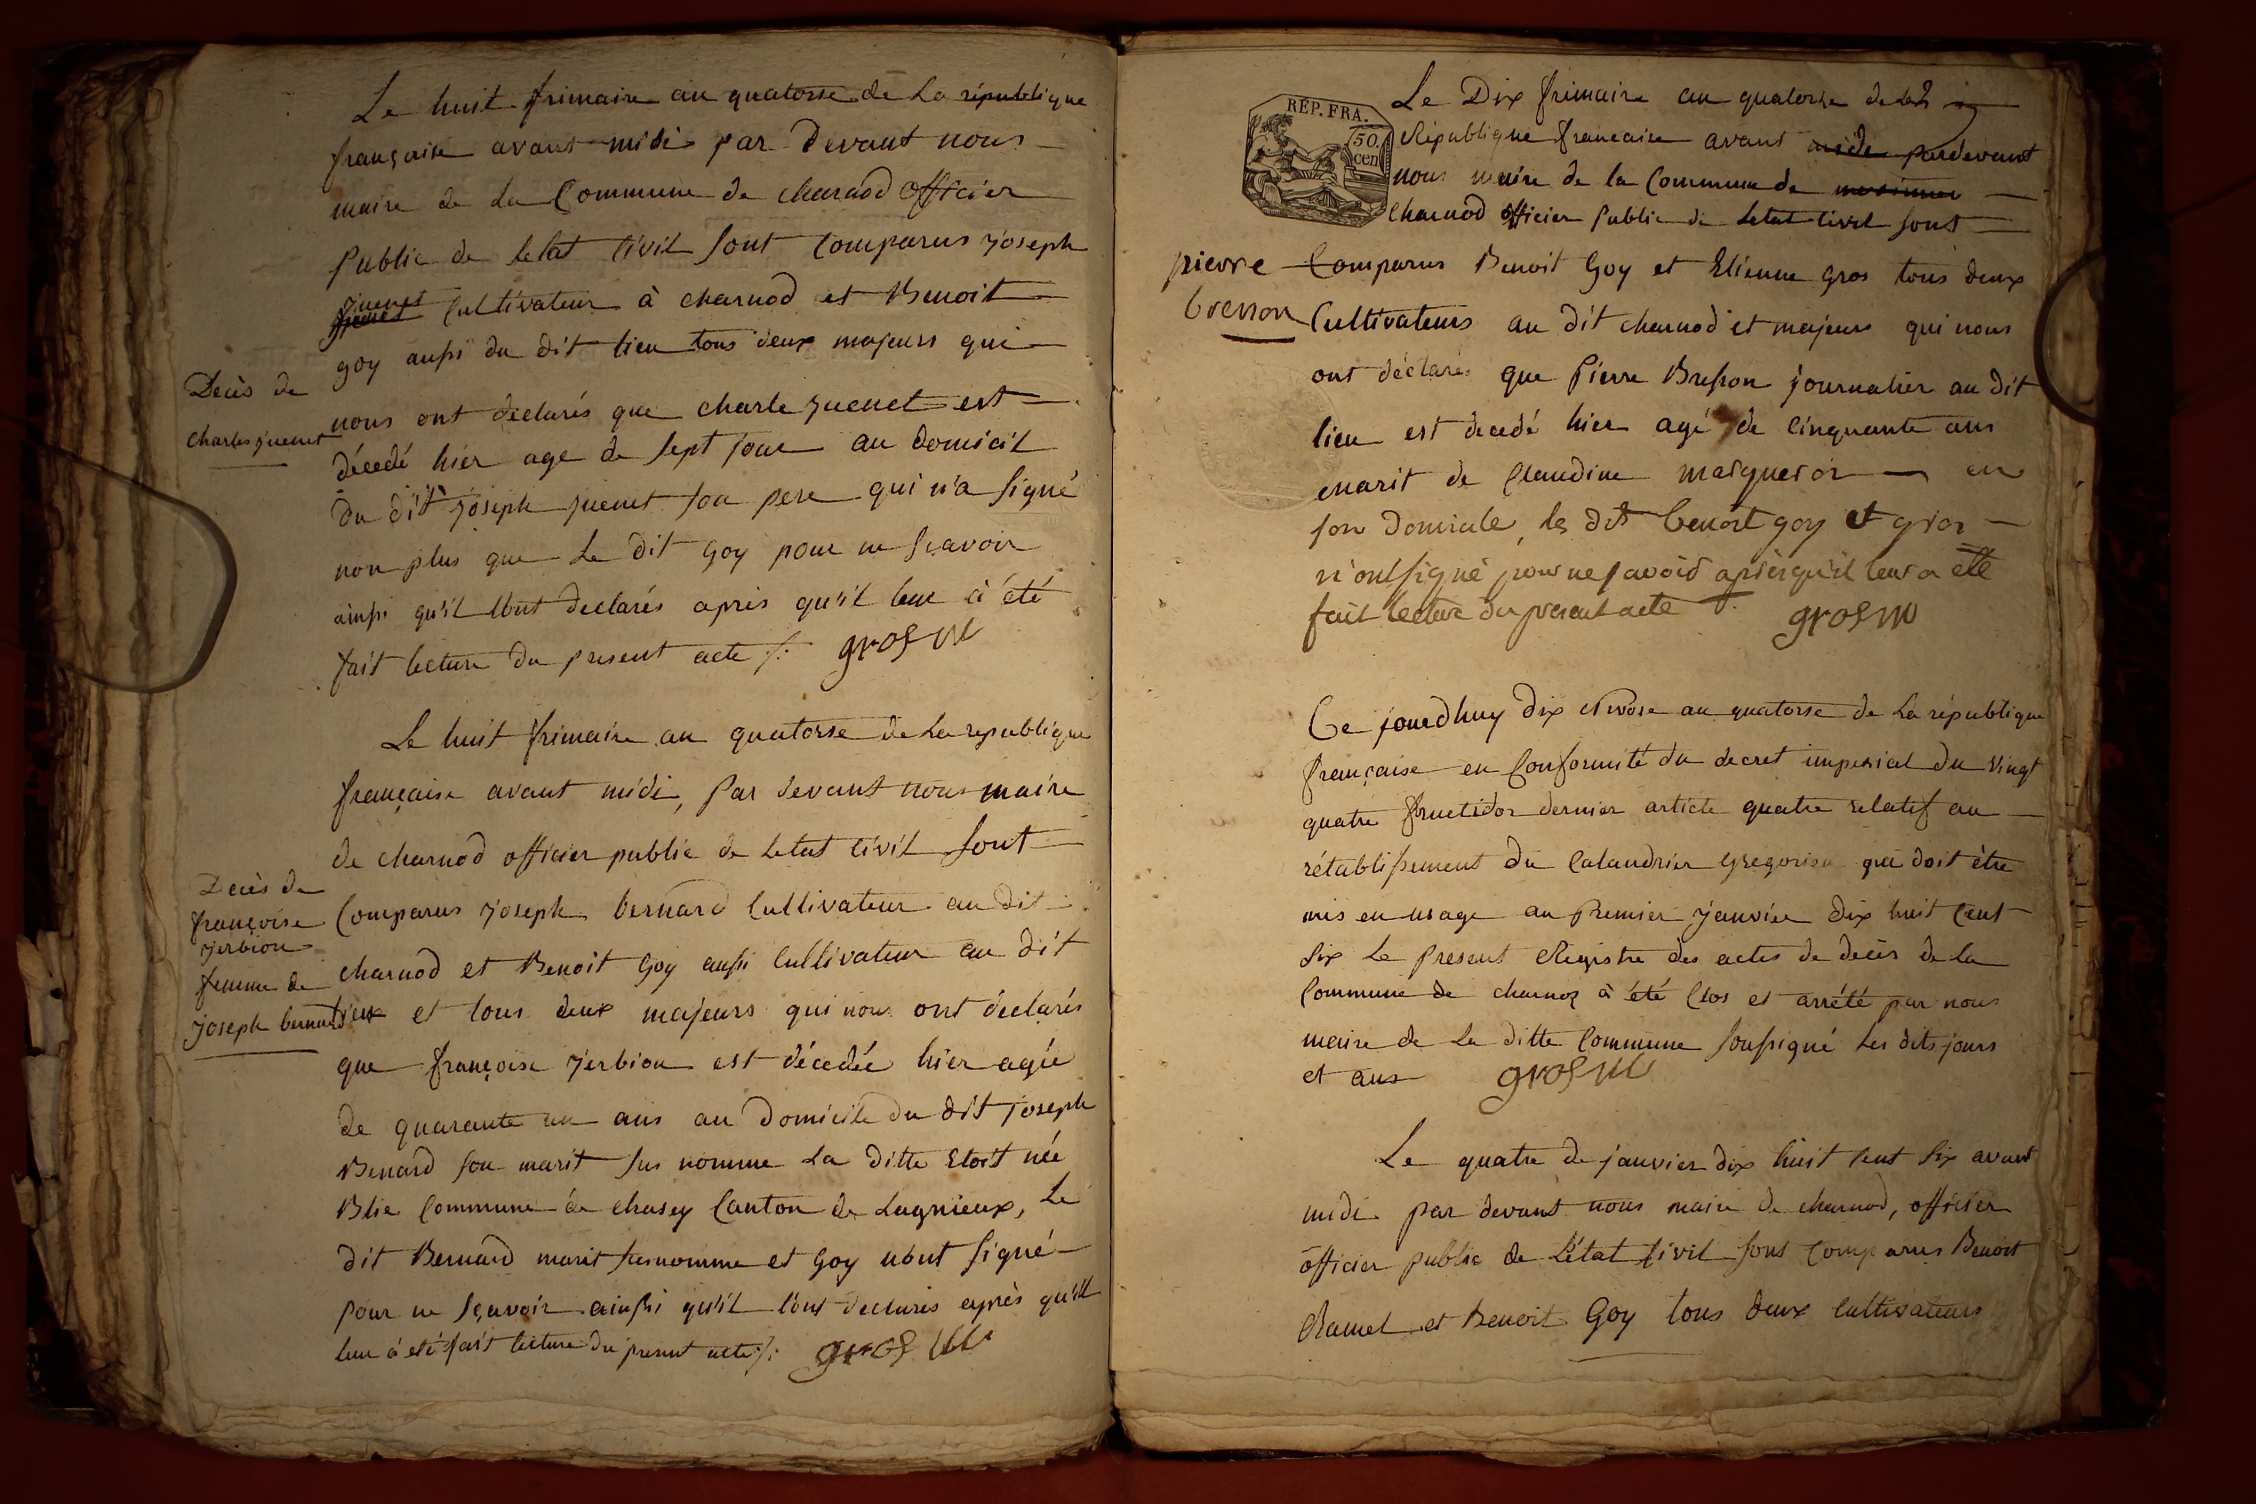 Le huit frimaire an quatorse de La république
française avant midi par Devant nous
maire de La Commune de charnod officier
Public de letat Civil sont Comparus joseph
juenet Cultivateur à charnod et Benoit
goy aussi du dit lieu tous deux majeurs qui
Decès de
charles juenet
nous ont declarés que charle juenet est
décedé hier age de sept jour au domicil
Du dit joseph juenet son pere qui n'a signé
non plus que Le dit Goy pour ne sçavoir
ainssi qu'il l'ont declarés après qu'il leur à été
fait lecture du present acte /: gros m
Le huit frimaire an quatorse de La republique
française avant midi, Par devant nous maire
de charnod officier public de Letat civil sont
Decès de
françoise
jerbion
femme de
joseph bernard
Comparus joseph bernard Cultivateur au dit
charnod et Benoit Goy aussi Cultivateur au dit
lieu et tous deux majeurs qui nous ont déclarés
que françoise jerbion est décedée hier agée
de quarante un ans au Domicile du dit joseph
Benard son marit sus nomme La ditte Etoit née
Blie Commune de chasey Canton de Lagnieux, Le
dit Bernard marit susnomme et Goy n'ont signé
pour ne sçavoir ainssi qu'il l'ont declarés après qu'il
leur à été fait lecture du present acte /: gros m
RÉP. FRA.
50.
cen
Le Dix frimaire an quatorse de La
République francaise avant midi pardevant
nous maire de la Commune de
charnod officier Public de Letat civil sont
pierre
bresson
Comparus Benoit Goy et Etienne gros tous deux
Cultivateurs au dit charnod et majeurs qui nous
ont déclarés que Pierre Bresson journalier au dit
lieu est decedé hier agé de Cinquante ans
marit de Claudine en
son Domicile, les dits benoit goy et gros
n'ont signé pour ne savoir après qu'il leur a été
fait lecture du present acte gros m
Ce jourdhuy dix Nivose an quatorse de La république
française en Conformité du decret imperial du vingt
quatre fructidor dernier article quatre relatif au
rétablissement du Calandrier Gregorien qui doit être
mis en usage au Premier janvier dix huit Cent
six Le Present Registre des actes de decès de La
Commune de charnoz à été Clos et arrété par nous
maire de La ditte Commune soussigné Les dits jours
et ans gros m
Le quatre de janvier dix huit Cent Six avant
midi par devant nous maire de charnod, officier
officier public de L'état Civil sont Comparus Benoit
Ramel et Benoit Goy tous deux Cultivateurs